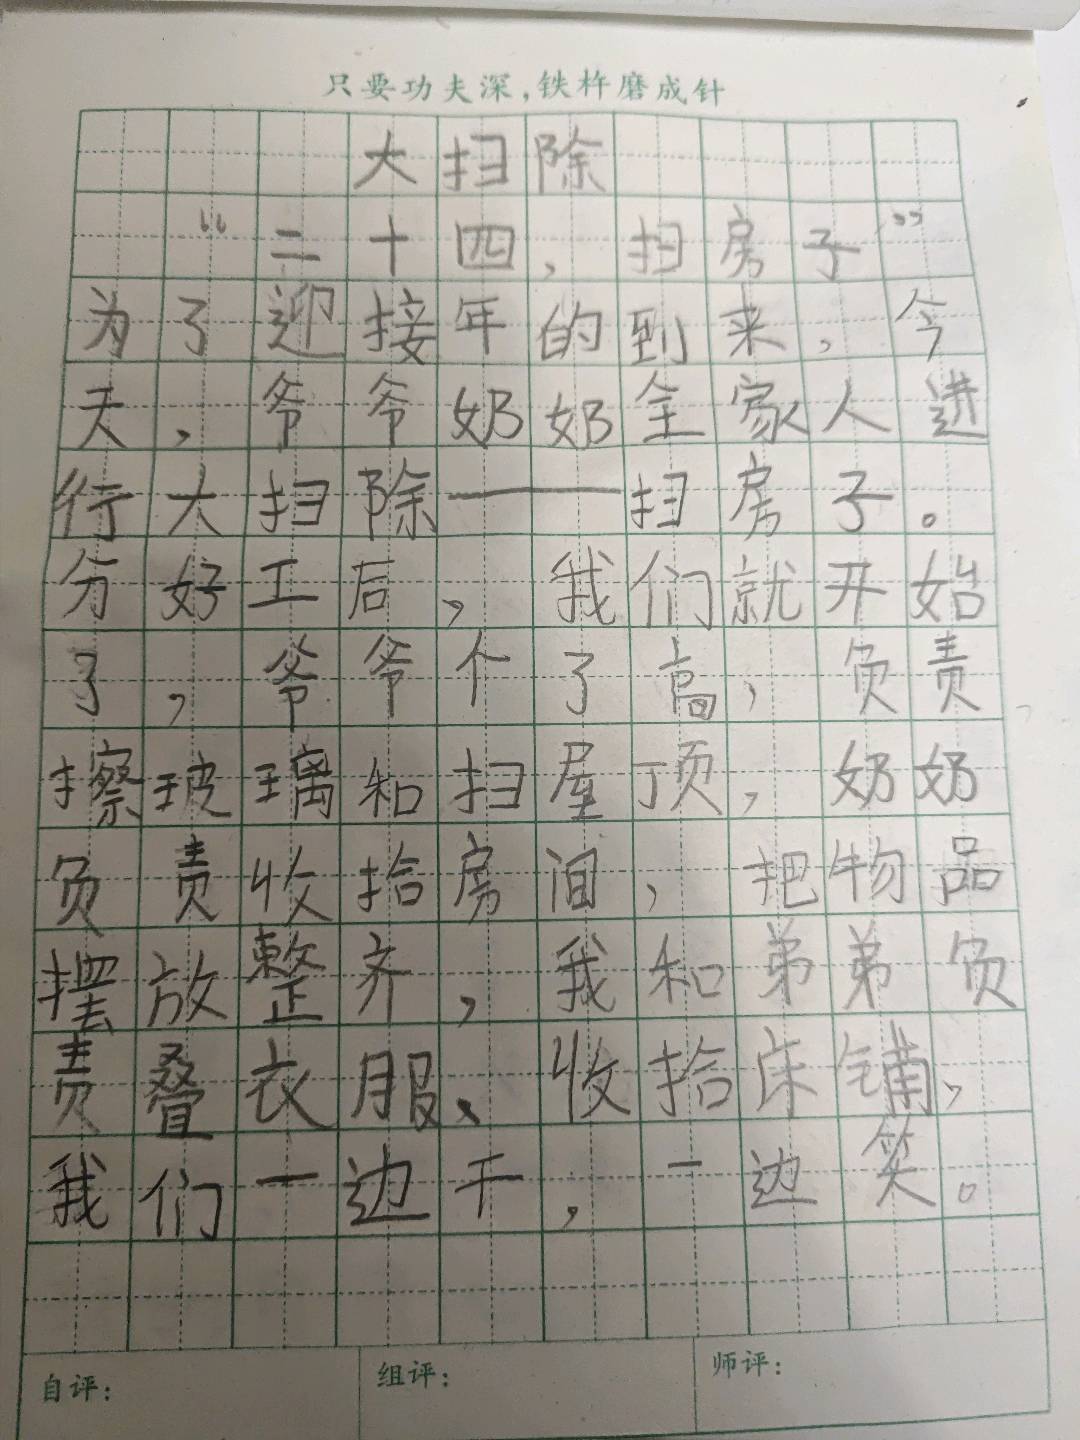 只要功夫深，铁杵磨成针
大扫除
“二十四，扫房子”
为了迎接年的到来，今
天，爷爷奶奶全家人进
行大扫除——扫房子。
分好工后，我们就开始
了，爷爷个了高，负责
擦玻璃和扫屋顶，奶奶
负责收拾房间，把物品
摆放整齐，我和弟弟负
责叠衣服、收拾床铺，
我们一边干，一边笑。
自评： 组评： 师评：